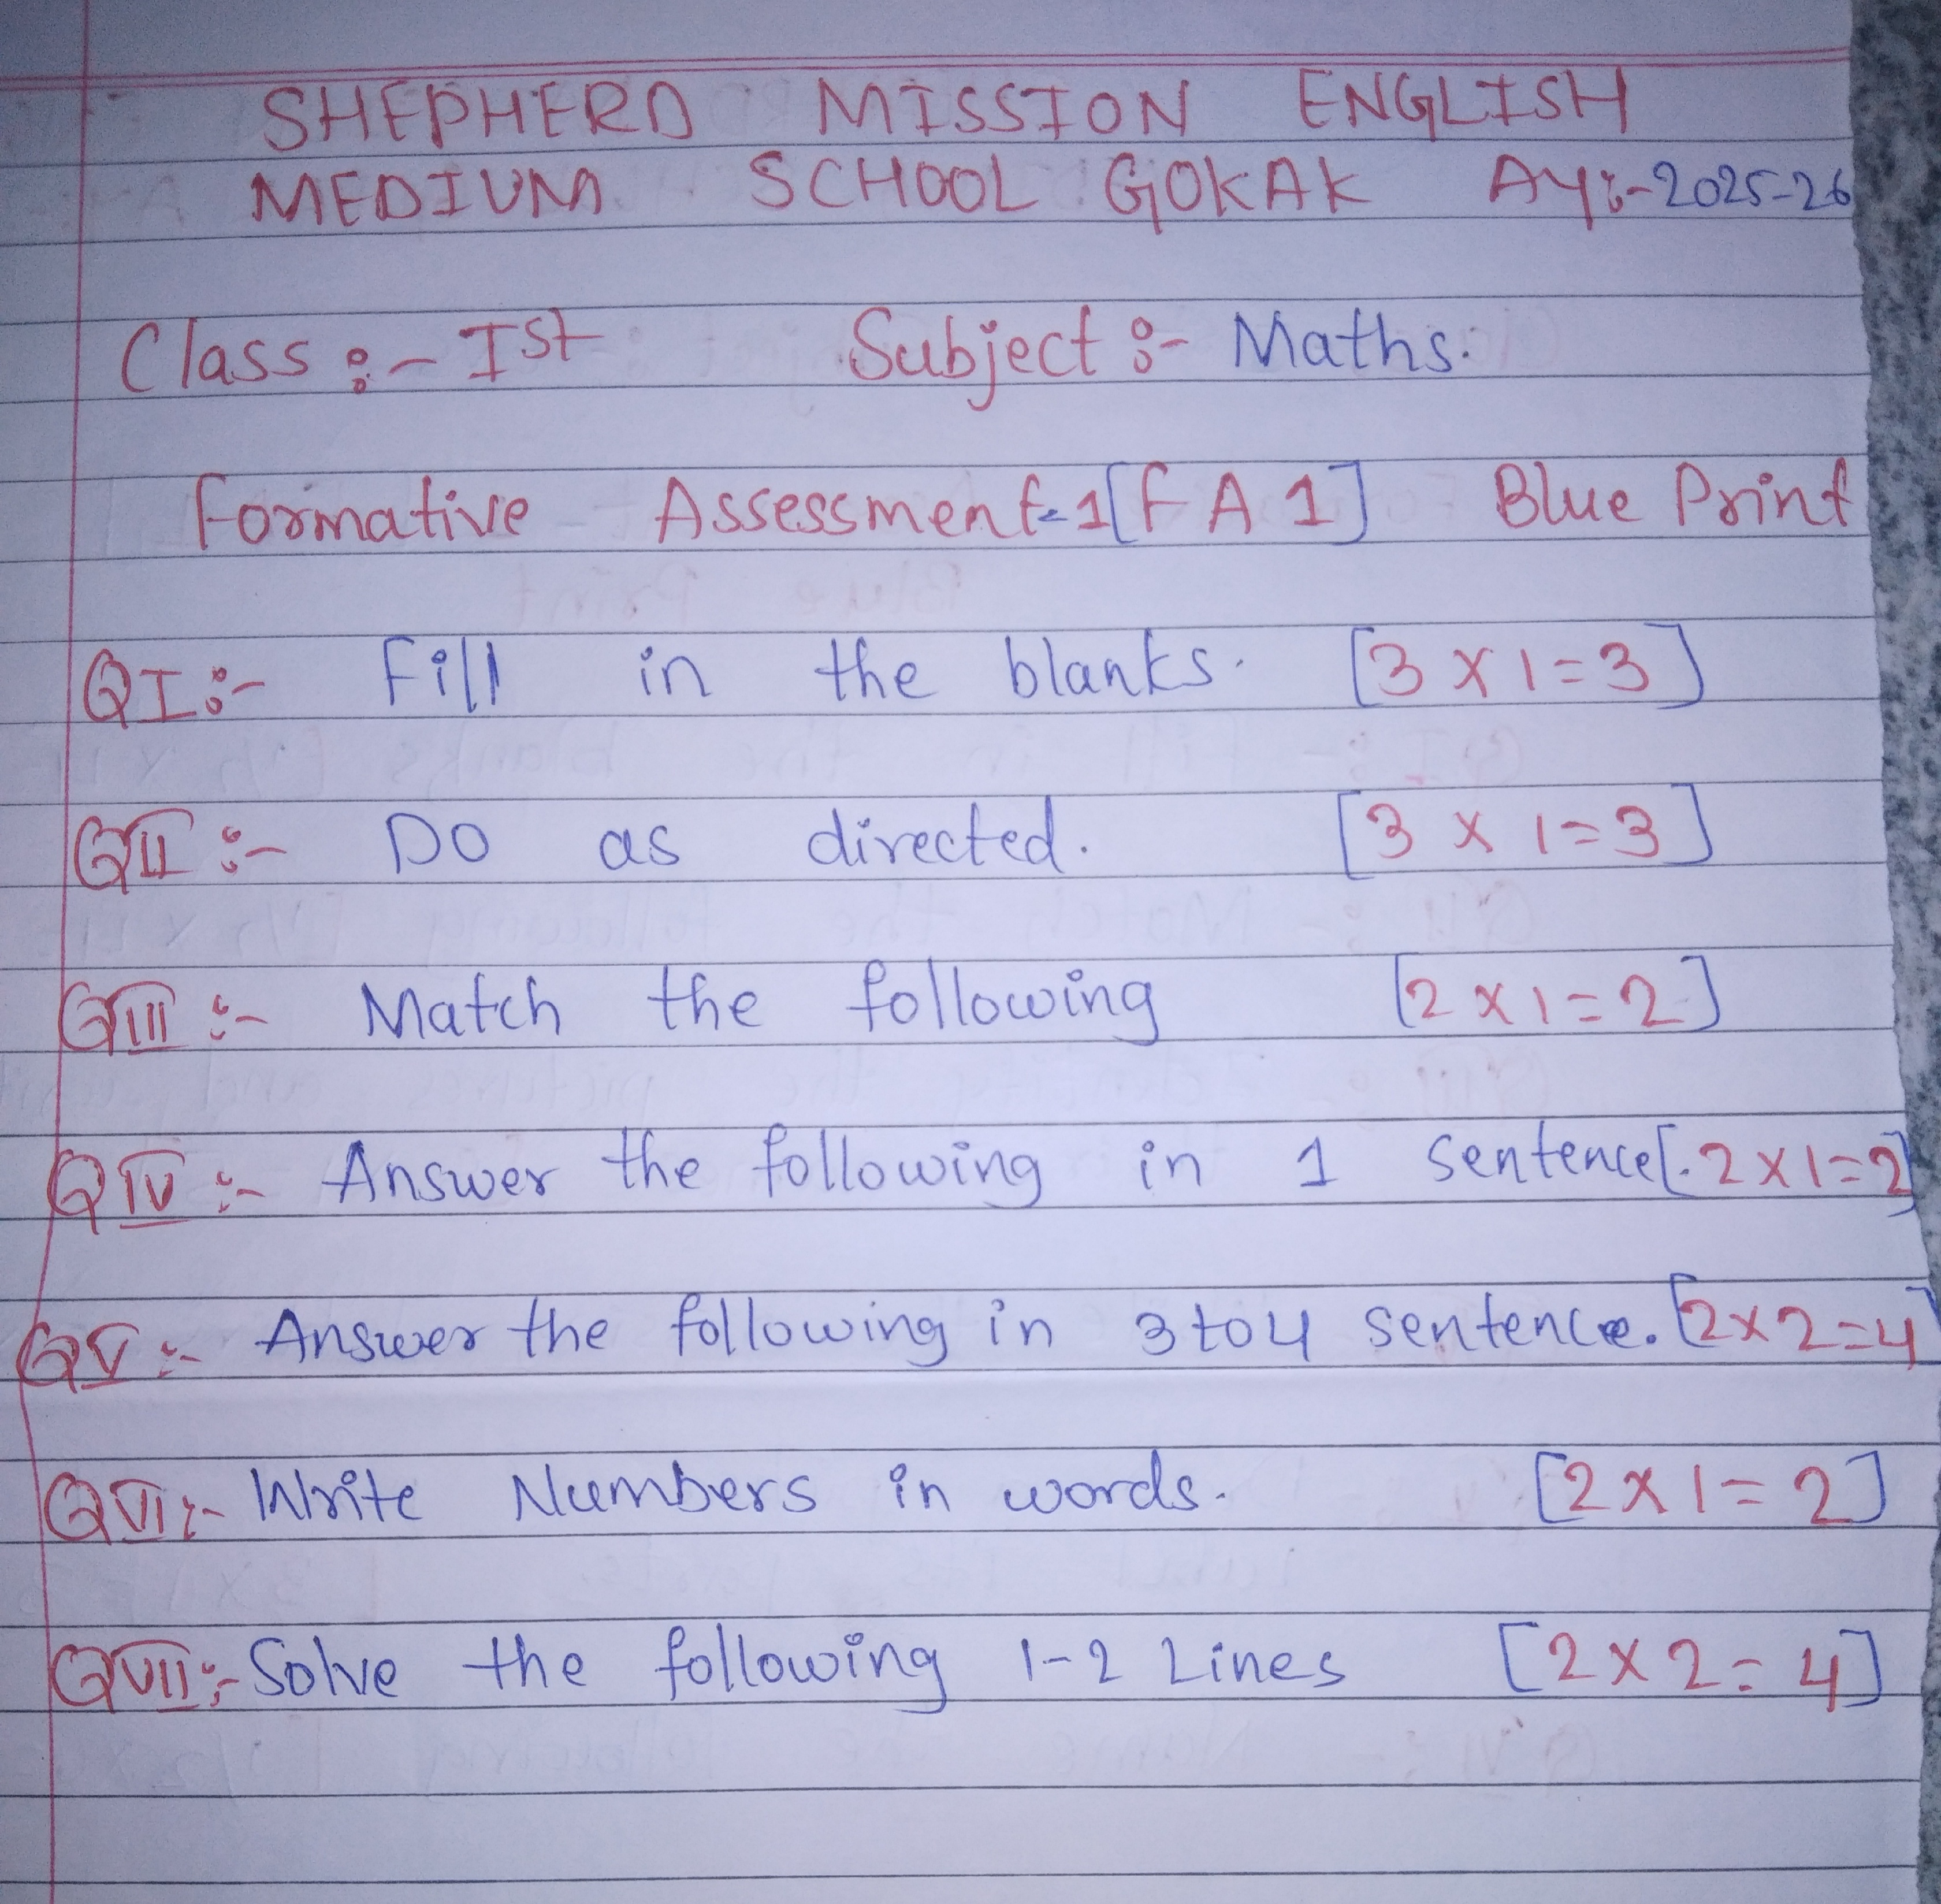 SHEPHERD MISSION ENGLISH
MEDIUM SCHOOL GOKAK AY:-2025-26
Class :- Ist Subject :- Maths.
Formative Assessment-1[FA1] Blue Print
QI:- Fill in the blanks. [3 x 1=3]
QII :- Do as directed. [3 x 1=3]
QIII :- Match the following [2 x 1=2]
QIV :- Answer the following in 1 sentence[.2x1=2]
QV :- Answer the following in 3 to 4 sentence. [2x2=4]
QVI:- Write Numbers in words. [2 x 1= 2]
QVII:- Solve the following 1-2 Lines [2 x 2= 4]